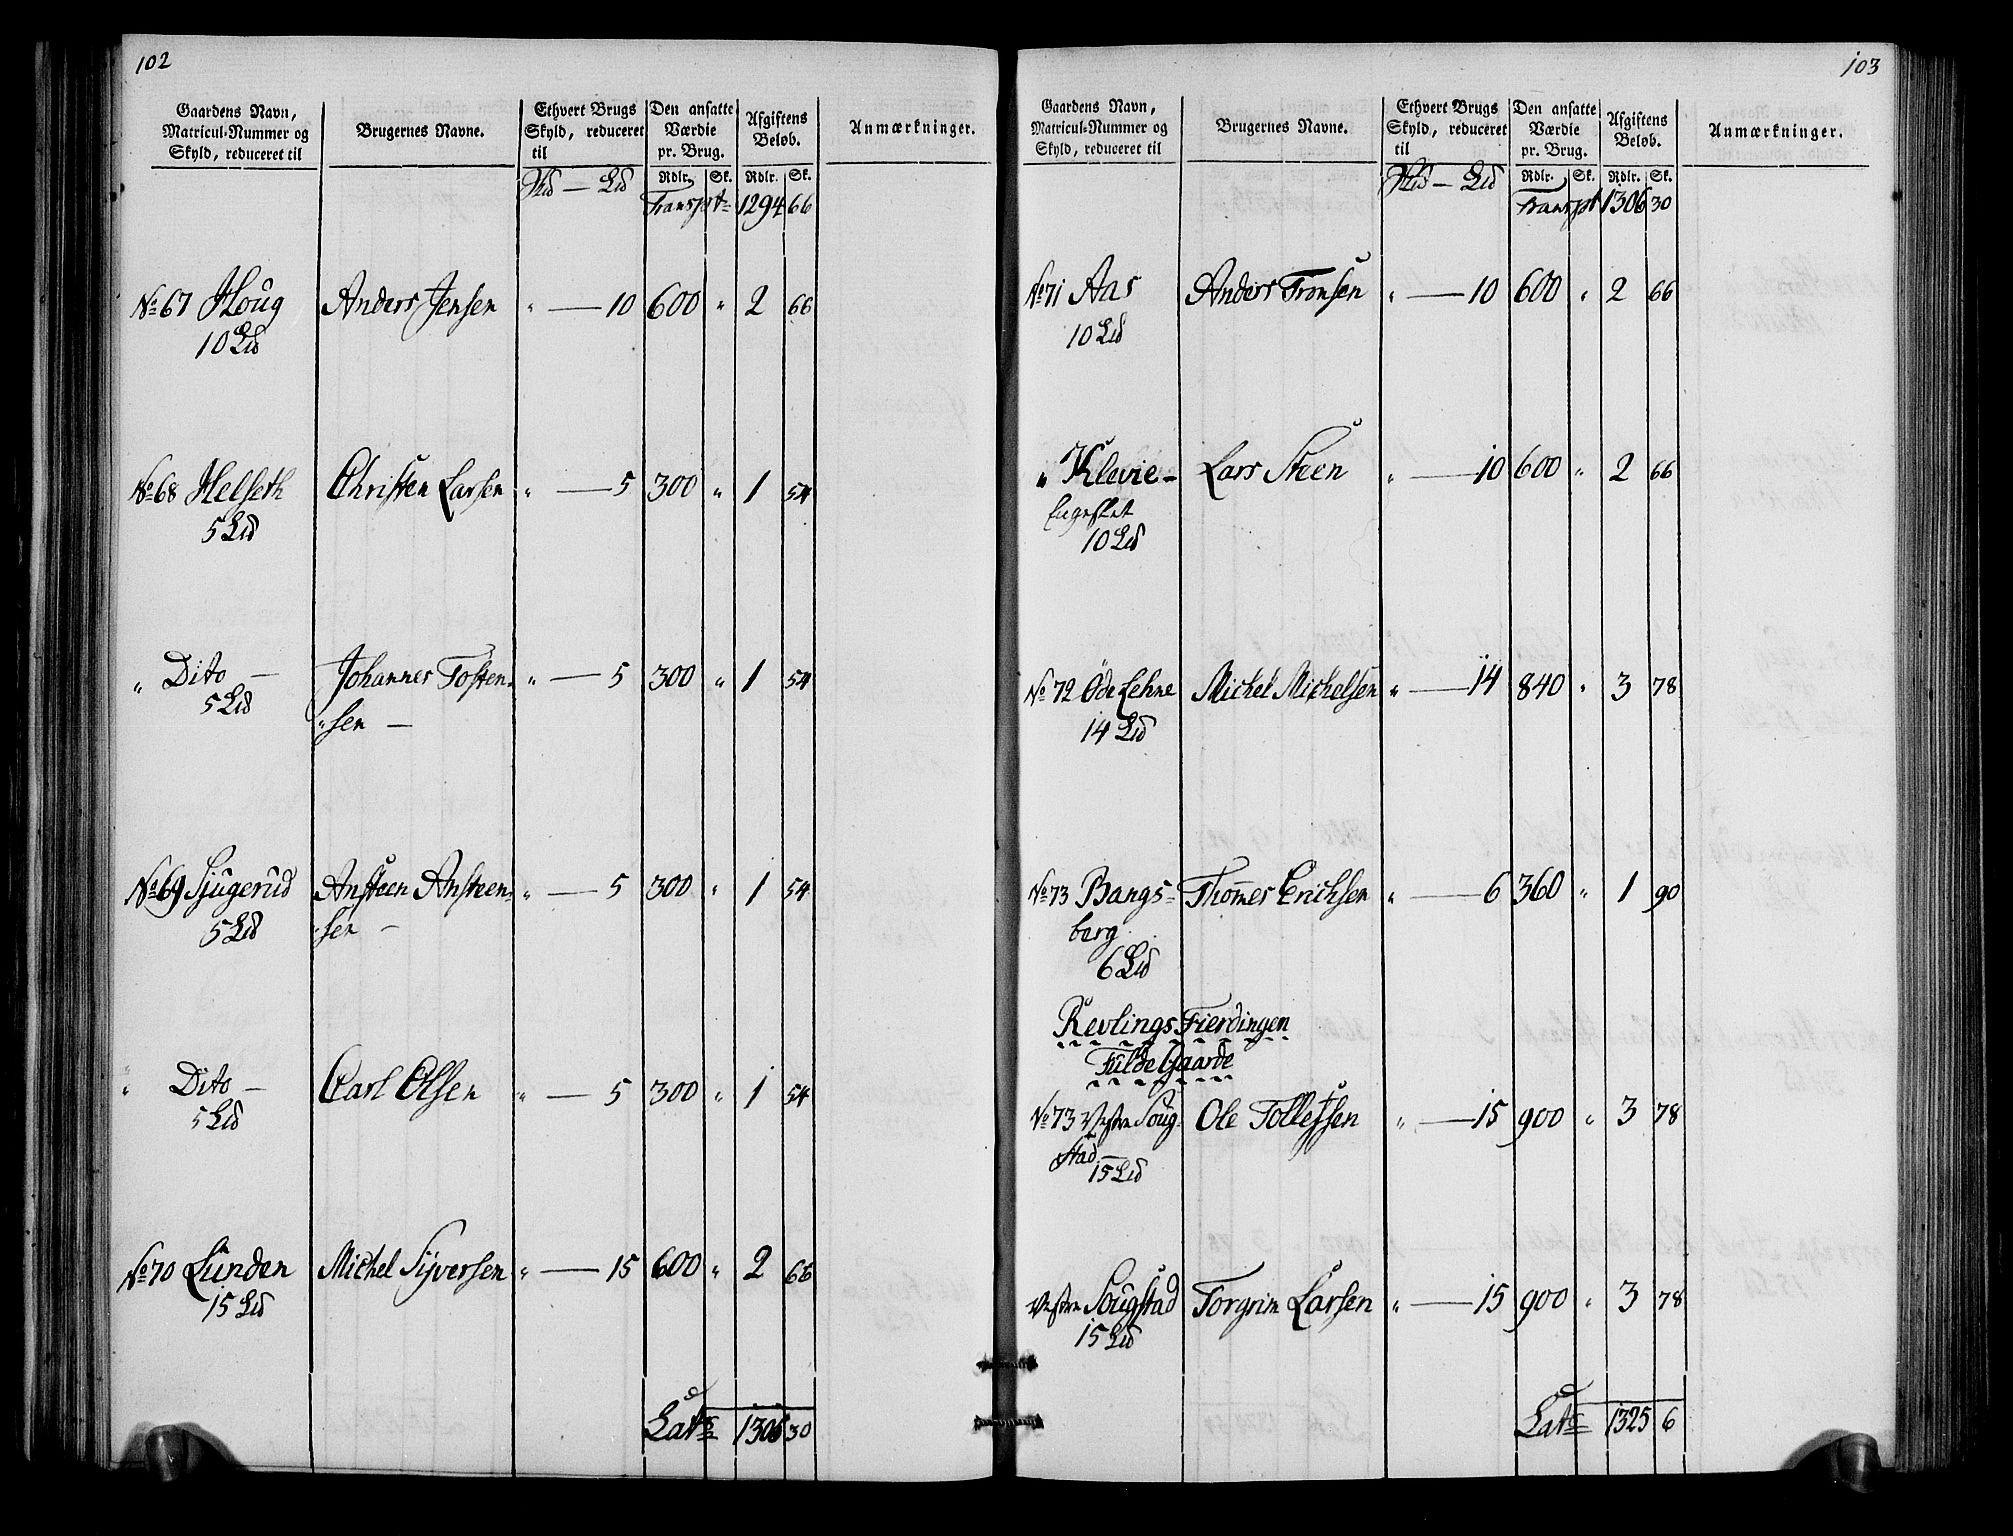 102
Gaardens Navn, Matricul-Nummer og Skyld, reduceret til | Brugernes Navne. | Ethvert Brugs Skyld, reduceret til | Den ansatte Værdie pr. Brug. | Afgiftens Beløb. | Anmærkninger.
Hud — Lid | Rdlr. | Sk. | Rdlr. | Sk.
Transpt | 1294 | 66
No 67 Houg | Anders Jensen | " — 10 | 600 | " | 2 | 66
10 Lid
No 68 Helseth | Christen Larsen | " — 5 | 300 | " | 1 | 54
5 Lid
" Dito — | Johannes Tosten= | " — 5 | 300 | " | 1 | 54
5 Lid | "sen —
No 69 Sjugerud | Ansteen Ansteen= | " — 5 | 300 | " | 1 | 54
5 Lid | "sen —
" Dito — | Carl Olsen | " — 5 | 300 | " | 1 | 54
5 Lid
No 70 Lunden | Michel Sÿversen | " — 15 | 600 | " | 2 | 66
15 Lid
Lats | 1306 | 30
103
Gaardens Navn, Matricul-Nummer og Skyld, reduceret til | Brugernes Navne. | Ethvert Brugs Skyld, reduceret til | Den ansatte Værdie pr. Brug. | Afgiftens Beløb. | Anmærkninger.
Hud — Lid | Rdlr. | Sk. | Rdlr. | Sk.
Transpt | 1306 | 30
No 71 Aas | Anders Tronsen | " — 10 | 600 | " | 2 | 66
10 Lid
" Klevie= | Lars Steen | " — 10 | 600 | " | 2 | 66
Engeslet
10 Lid
No 72 Öde Lehne | Michel Michelsen | " — 14 | 840 | " | 3 | 78
14 Lid
No 73 Bangs= | Thomes Erichsen | " — 6 | 360 | " | 1 | 90
berg
6 Lid
Revlings Fierdingen
Fulde Gaarde
No 73 Vestre Soug= | Ole Tollefsen | " — 15 | 900 | " | 3 | 78
stad —
15 Lid
Vestre Sougstad | Torgrim Larsen | " — 15 | 900 | " | 3 | 78
15 Lid
Lats | 1325 | 6